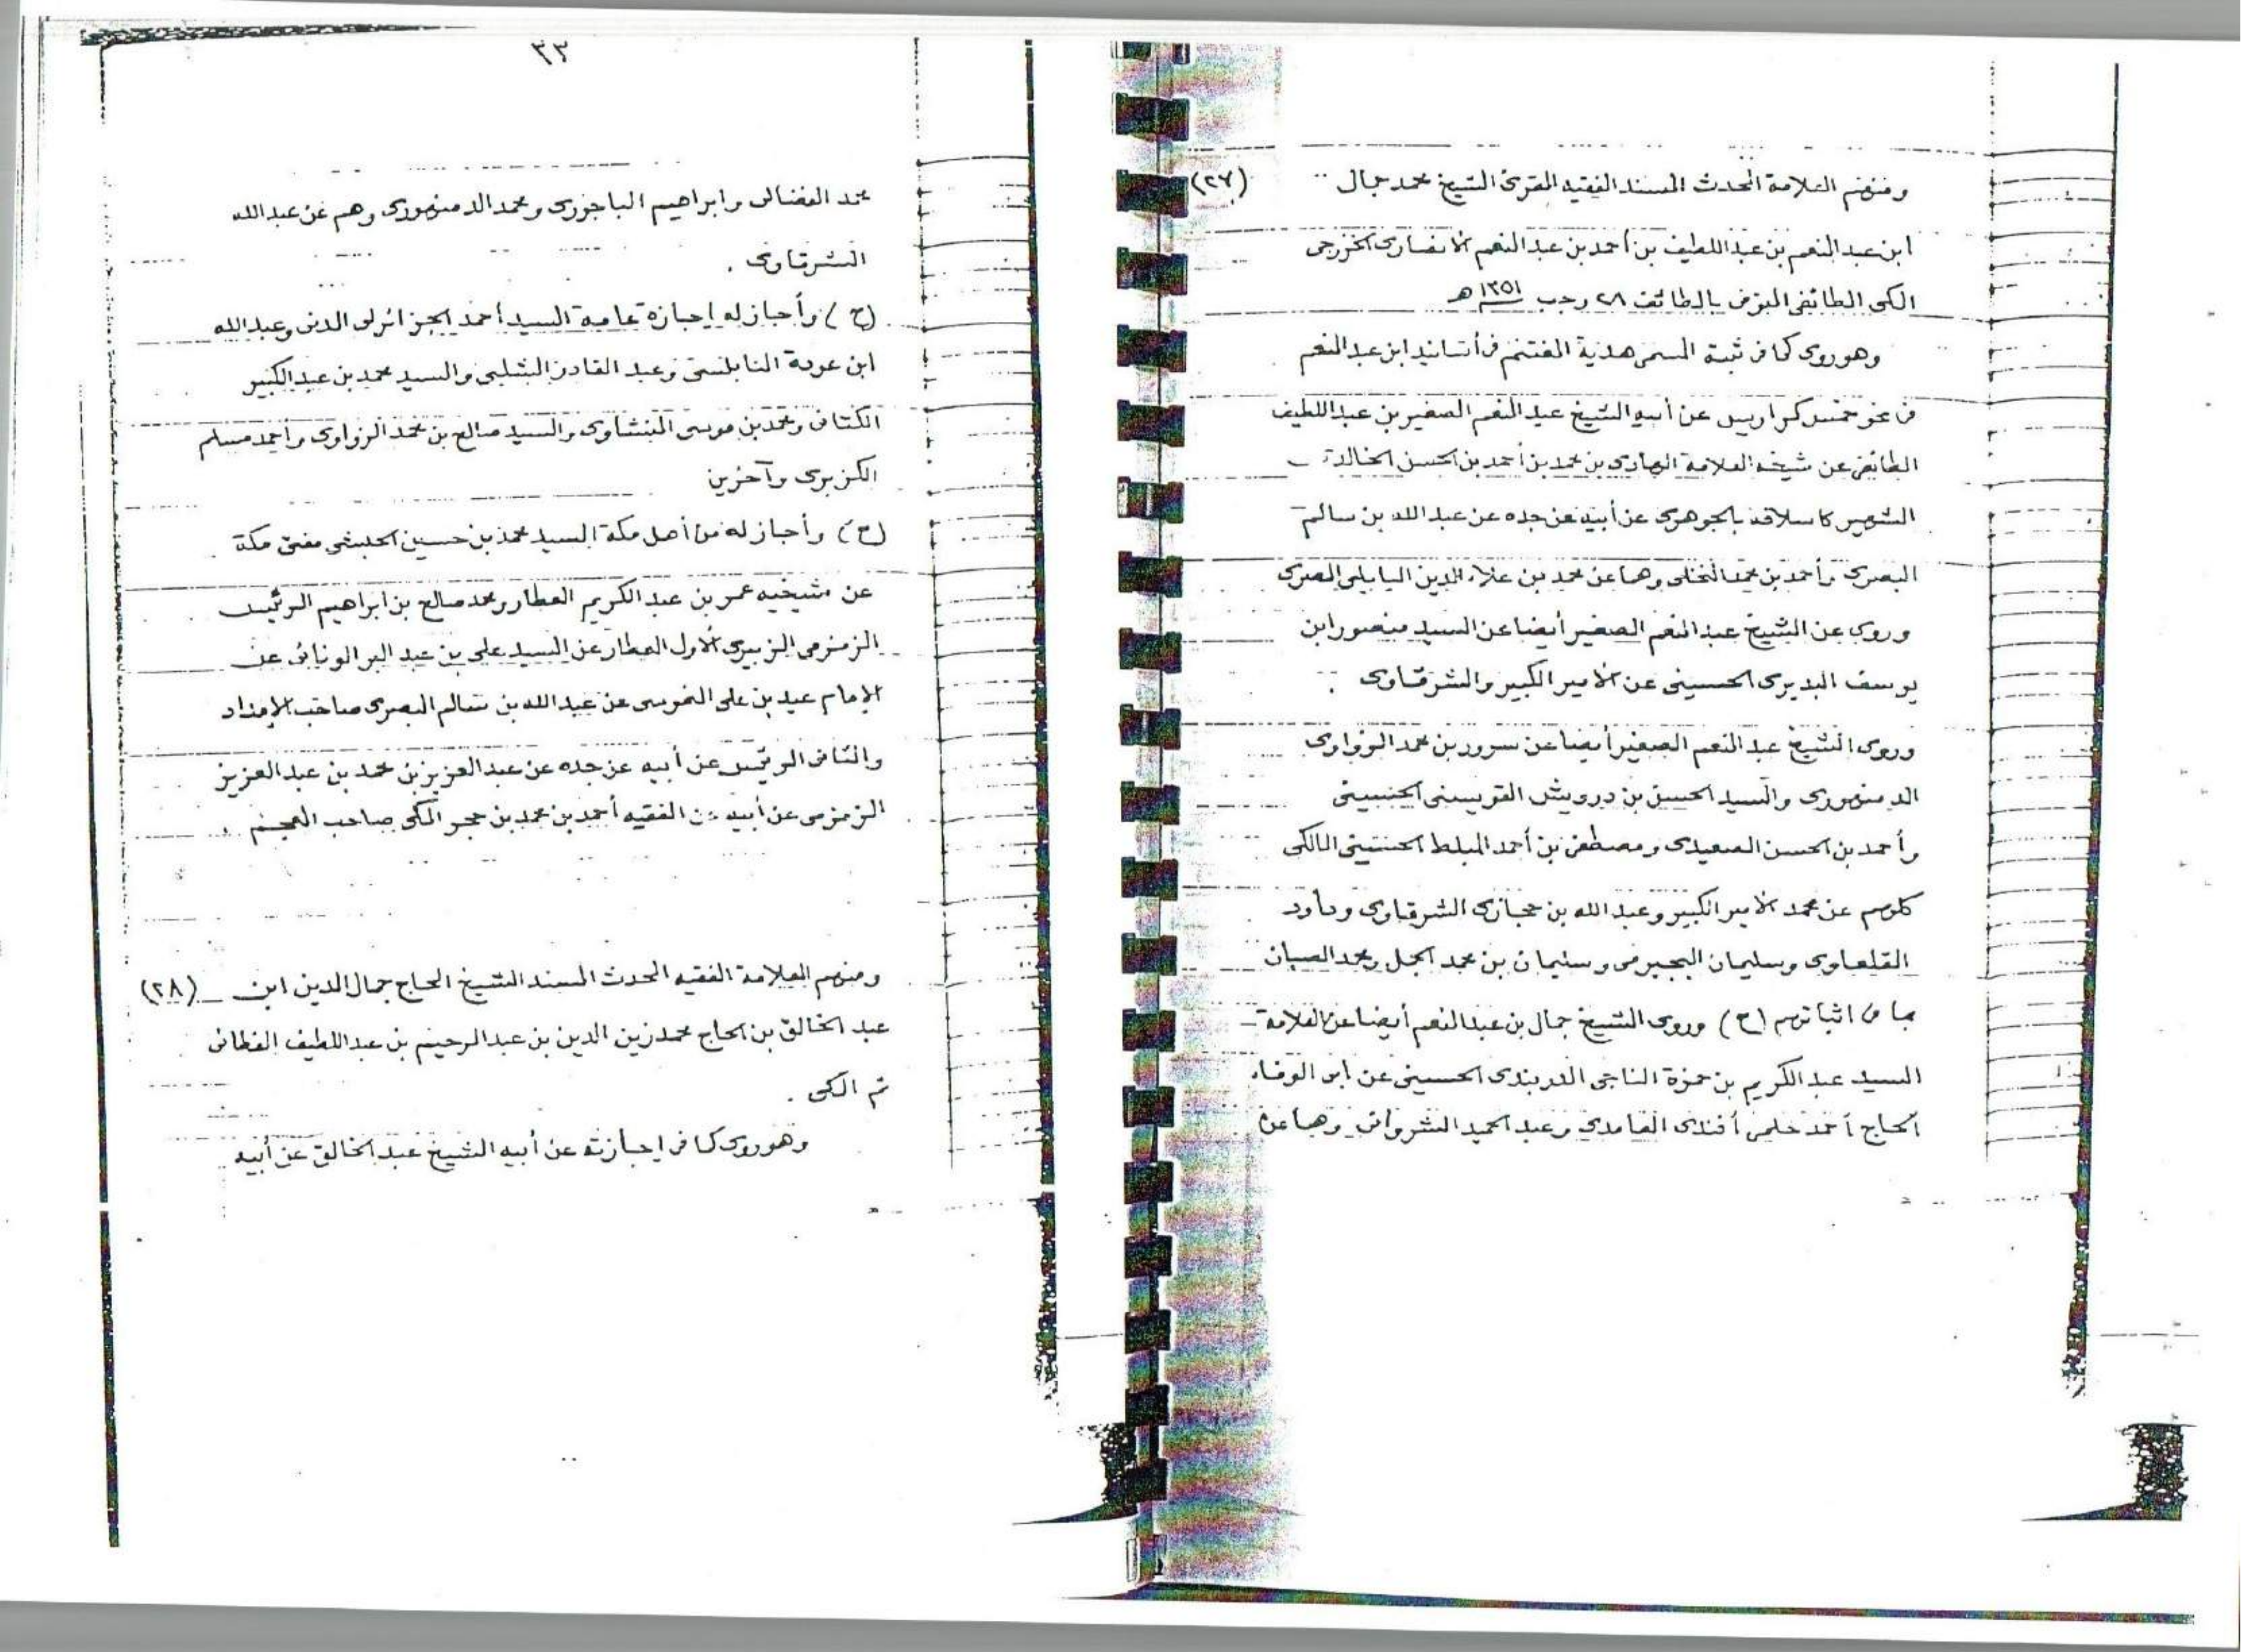 ومنهم العلامة المحدث المسند الفقيه المقرئ الشيخ محمد جمال (٢٧)
ابن عبد المنعم بن عبد اللطيف بن أحمد بن عبد المنعم الانصارى الخزرجى
المكى الطائفى المتوفى بالطائف ٢٨ رجب ١٣٥١ هـ
وهو روى كما فى ثبته المسمى هدية المغتنم فى أسانيد ابن عبد المنعم
فى نحو خمسه كراريس عن أبيه الشيخ عبد المنعم الصغير بن عبد اللطيف
الطائفى عن شيخه العلامة الهادى بن محمد بن أحمد بن الحسن الخالدى
الشهير كاسلافه بالجوهرى عن أبيه عن جده عن عبد الله بن سالم
البصرى وأحمد بن محمد النخلى وهما عن محمد بن علاء الدين البابلى المصرى
وروى عن الشيخ عبد المنعم الصغير أيضا عن السيد منصور ابن
يوسف البديرى الحسينى عن الأمير الكبير والشرقاوى .
وروى الشيخ عبد المنعم الصغير أيضا عن سرور بن محمد الزواوى
الدمنهورى والسيد الحسن بن درويش القويسنى الحسينى
وأحمد بن الحسن الصعيدى ومصطفى بن أحمد المبلط الحسينى المالكى
كلهم عن محمد الأمير الكبير وعبد الله بن حجازى الشرقاوى وداود
القلعاوى وسليمان البجيرمى وسليمان بن محمد الجمل ومحمد الصبان
بما فى اثباتهم (ح) وروى الشيخ جمال بن عبد المنعم أيضا عن العلامة
السيد عبد الكريم بن حمزة الناجى الدربندى الحسينى عن أبى الوفاء
الحاج أحمد حلمى أفندى الغامدى وعبد الحميد الشروانى وهما عن
٣٣
محمد الفضالى وابراهيم الباجورى ومحمد الدمنهورى وهم عن عبد الله
الشرقاوى .
(ح) وأجاز له إجازة عامة السيد أحمد الجزائرلى المدنى وعبد الله
ابن عودة النابلسى وعبد القادر الشلبى والسيد محمد بن عبد الكبير
الكتانى ومحمد بن موسى المنشاوى والسيد صالح بن محمد الزواوى وأحمد مسلم
الكزبرى وآخرين
(ح) وأجاز له من أهل مكة السيد محمد بن حسين الحبشى مفتى مكة
عن شيخيه عمر بن عبد الكريم العطار ومحمد صالح بن ابراهيم الرئيس
الزمزمى الزبيرى الأول العطار عن السيد على بن عبد البر الونائى عن
الإمام عيد بن على النمرسى عن عبد الله بن سالم البصرى صاحب الإمداد
والثانى الرئيس عن أبيه عن جده عن عبد العزيز بن محمد بن عبد العزيز
الزمزمى عن أبيه عن الفقيه أحمد بن محمد بن حجر المكى صاحب المعجم .
ومنهم العلامة الفقيه المحدث المسند الشيخ الحاج جمال الدين ابن (٢٨)
عبد الخالق بن الحاج محمد زين الدين بن عبد الرحيم بن عبد اللطيف الفطانى
ثم المكى .
وهو روى كما فى إجازته عن أبيه الشيخ عبد الخالق عن أبيه